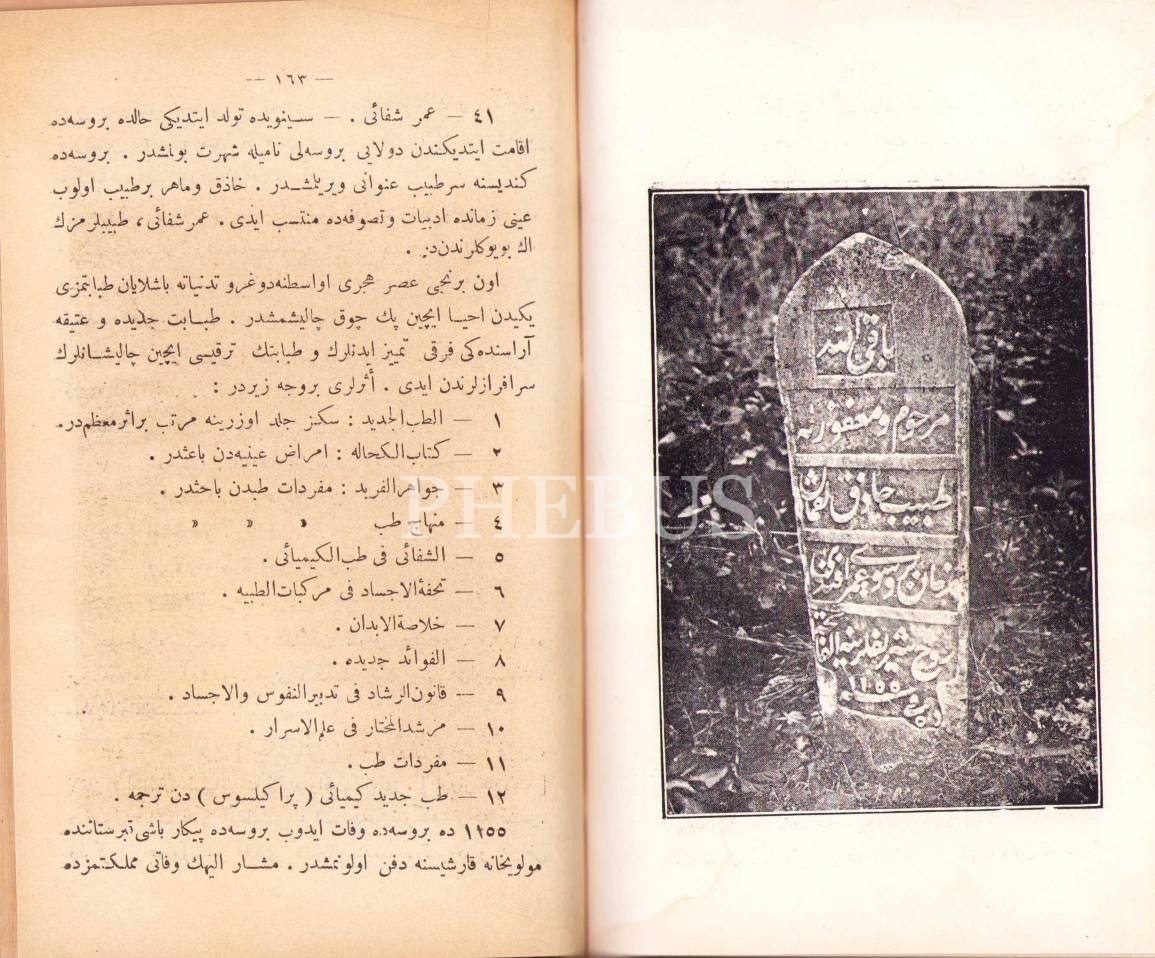 — ١٦٣ —
٤١ — عمر شفائی . — سينوپده تولد ايتديكی حالده بروسه‌ده
اقامت ايتديكندن دولايی بروسه‌لی ناميله شهرت بولمشدر . بروسه‌ده
كنديسنه سرطبيب عنوانی ويريلمشدر . حاذق وماهر برطبيب اولوب
عينی زمانده ادبيات وتصوفه‌ده منتسب ايدی . عمر شفائی، طبيبلرمزك
اك بويوكلرندن‌در .
اون برنجی عصر هجری اواسطنه‌دوغرو تدنياته باشلايان طبابتمزی
يكيدن احيا ايچين پك چوق چاليشمشدر . طبابت جديده و عتيقه
آراسنده‌كی فرقی تمييز ايدنلرك و طبابتك ترقيسی ايچين چاليشانلرك
سرافرازلرندن ايدی . أثرلری بروجه زيردر :
١ — الطب‌الجديد : سكز جلد اوزرينه مرتب براثرمعظم‌در.
٢ — كتاب‌الكحاله : امراض عينيه‌دن باعثدر .
٣ — جواهرالفريد : مفردات طبدن باحثدر .
٤ — منهاج طب » » »
٥ — الشفائی فی طب‌الكيميائی .
٦ — تحفةالاجساد فی مركبات‌الطبيه .
٧ — خلاصةالابدان .
٨ — الفوائد جديده .
٩ — قانون‌الرشاد فی تدبيرالنفوس والاجساد .
١٠ — مرشدالمختار فی علم‌الاسرار .
١١ — مفردات طب .
١٢ — طب جديد كيميائی ( پراكيلسوس ) دن ترجمه .
١١٥٥ ده بروسه‌ده وفات ايدوب بروسه‌ده پيكار باشی قبرستاننده
مولويخانه قارشيسنه دفن اولونمشدر . مشار اليهك وفاتی مملكتمزده
PHEBUS
باقی الله
مرحوم و مغفور له
طبيب حاذق لقمان
زمان بروسوی عمر افندی
روح شريفلرينه الفاتحه
سنه ١١٥٥